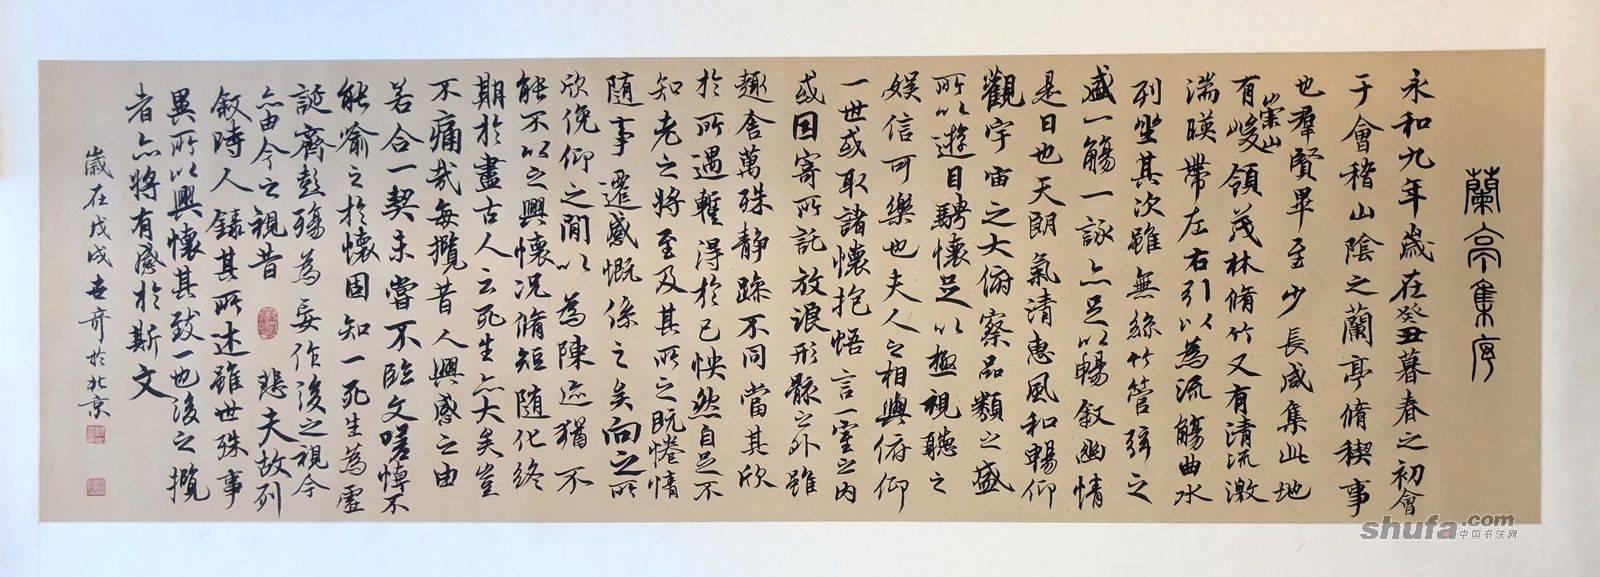 蘭亭集序
永和九年歲在癸丑暮春之初會
于會稽山陰之蘭亭脩稧事
也羣賢畢至少長咸集此地
有崇山峻領茂林脩竹又有清流激
湍暎帶左右引以為流觴曲水
列坐其次雖無絲竹管弦之
盛一觴一詠亦足以暢敘幽情
是日也天朗氣清惠風和暢仰
觀宇宙之大俯察品類之盛
所以遊目騁懷足以極視聽之
娛信可樂也夫人之相與俯仰
一世或取諸懷抱悟言一室之內
或因寄所託放浪形骸之外雖
趣舍萬殊靜躁不同當其欣
於所遇暫得於己怏然自足不
知老之將至及其所之既惓情
隨事遷感慨係之矣向之所
欣俛仰之間以為陳迹猶不
能不以之興懷況脩短隨化終
期於盡古人云死生亦大矣豈
不痛哉每攬昔人興感之由
若合一契未嘗不臨文嗟悼不
能喻之於懷固知一死生為虛
誕齊彭殤為妄作後之視今
亦由今之視昔 悲夫故列
敘時人錄其所述雖世殊事
異所以興懷其致一也後之攬
者亦將有感於斯文
歲在戊戌世奇於北京
shufa.com
中国书法网